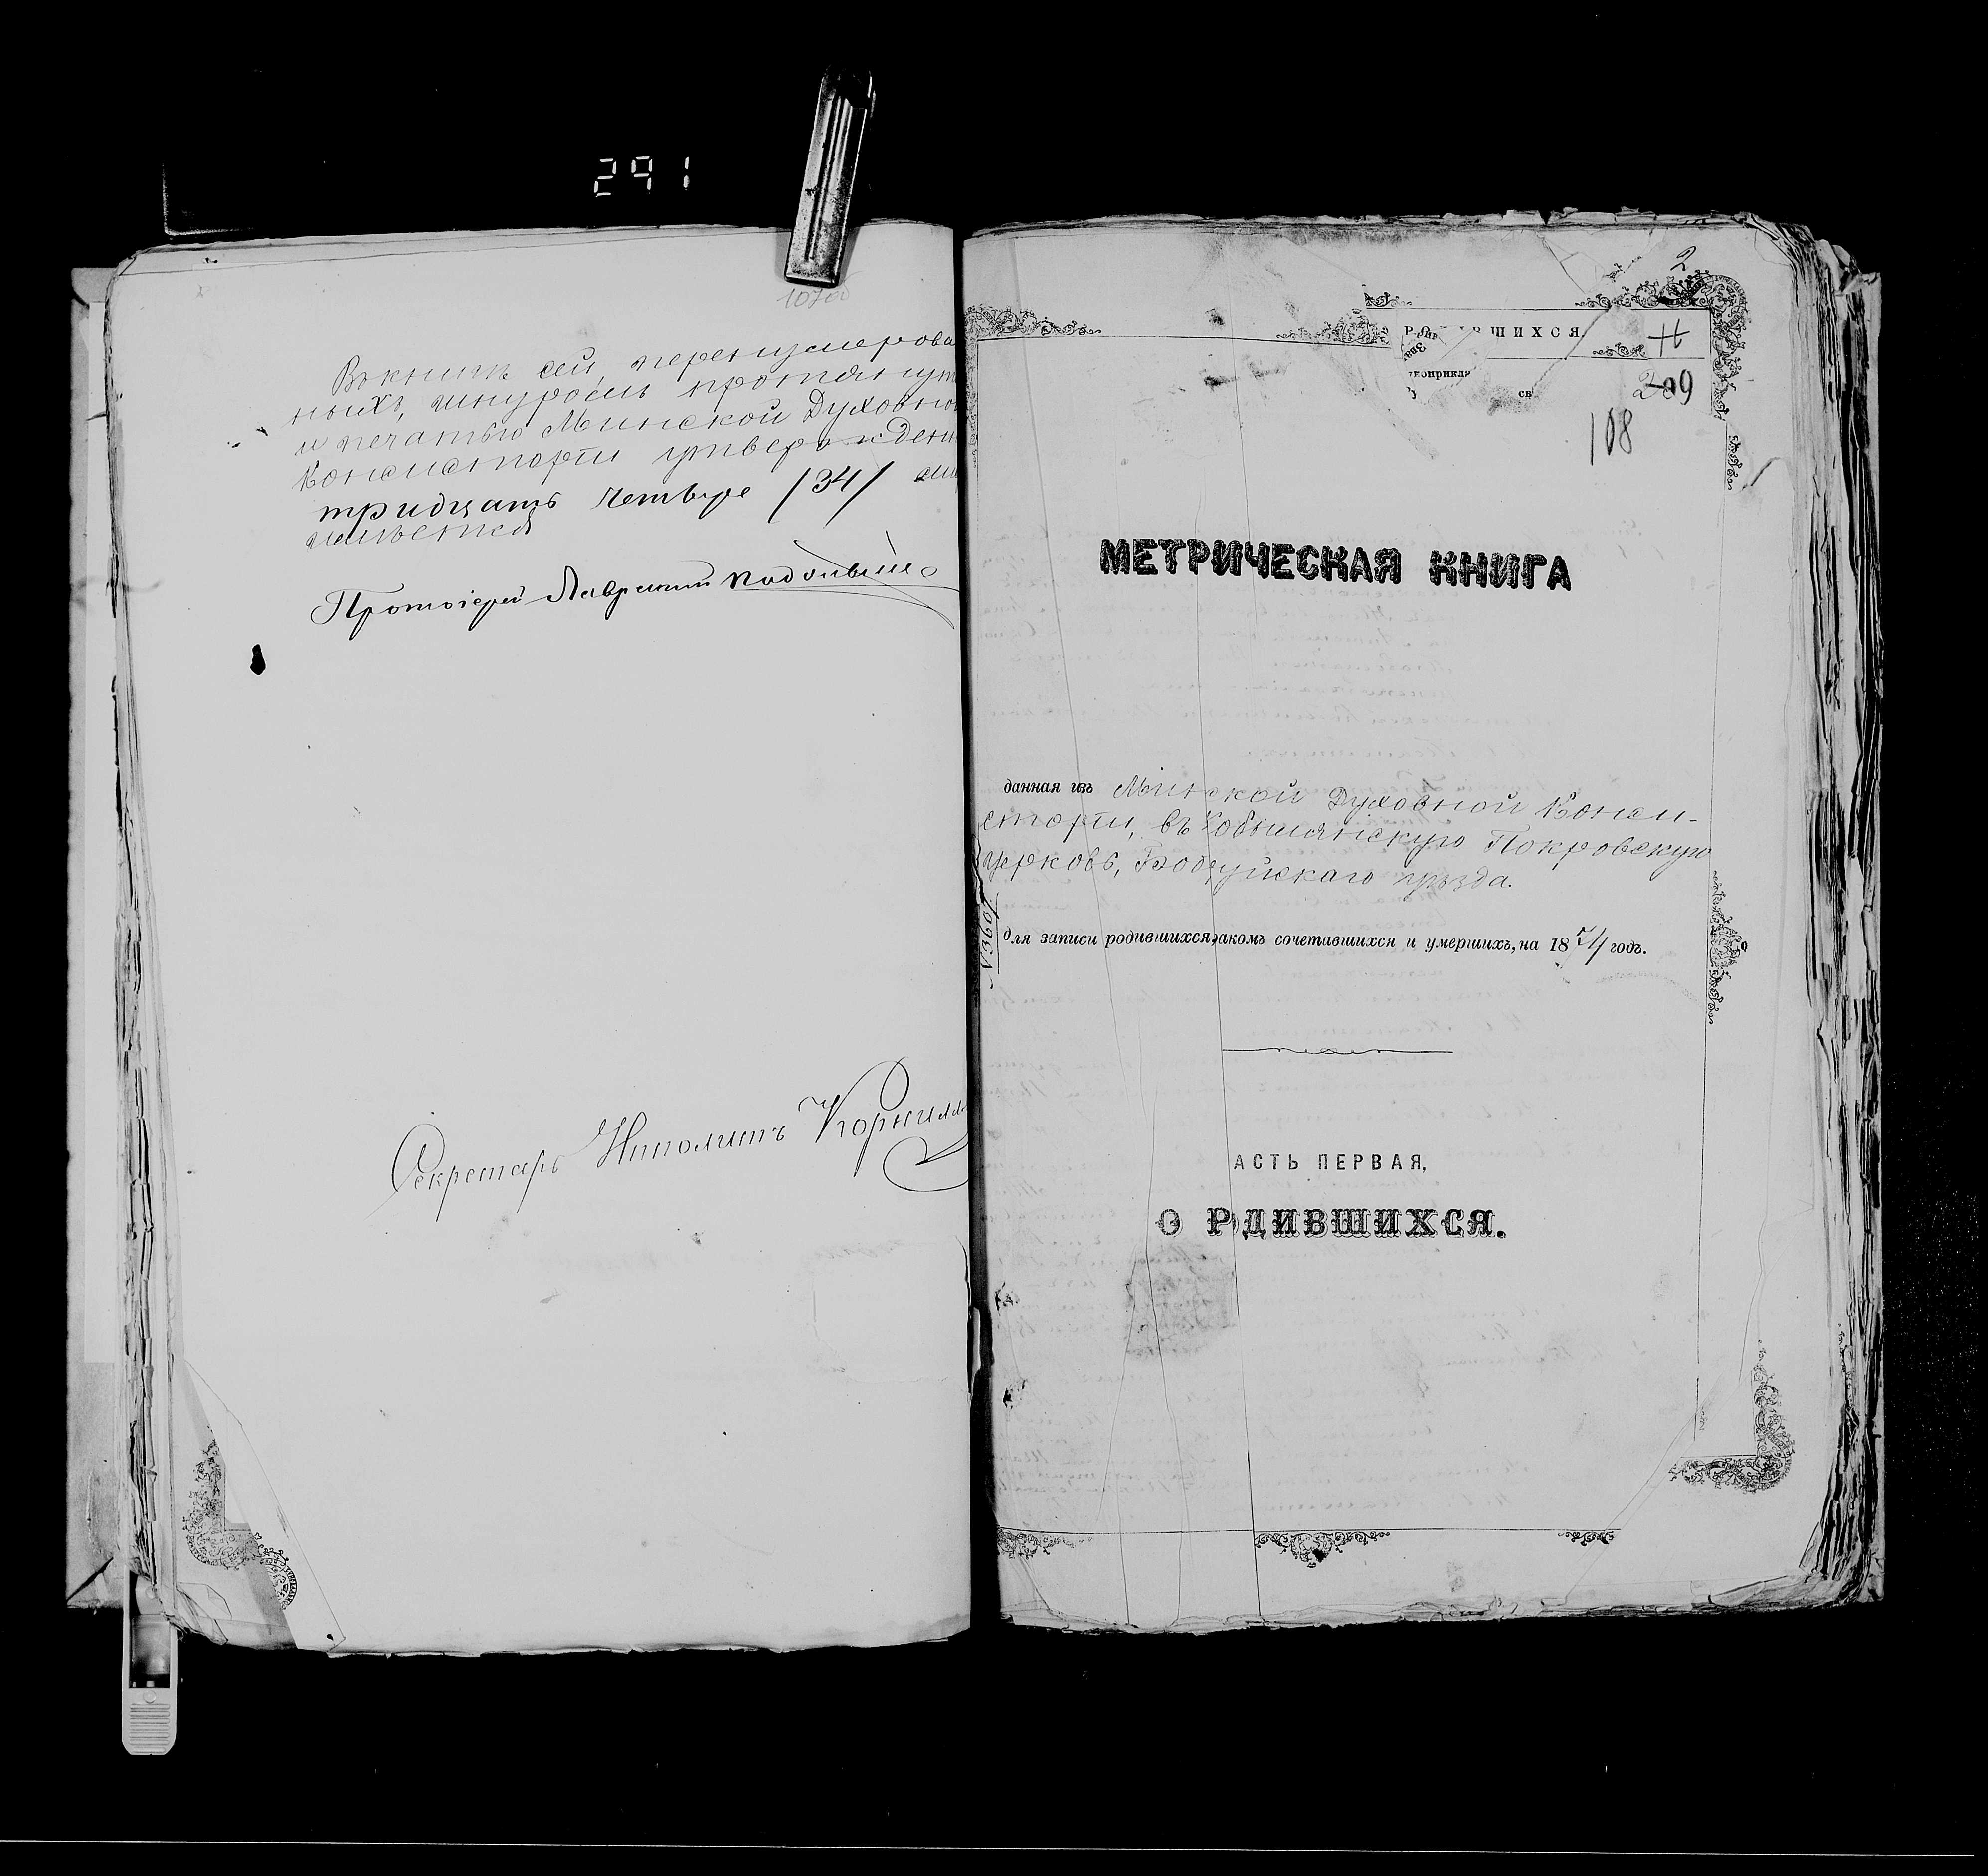 291
107об
Въ книгѣ сей, перенумерова
ныхъ, шнуромъ протянут
и печатью Минской Духовной
Консисторіи утвержден
тридцать четыре /34/
имѣется
Протоіерей Лаврентій
Секретарь Ипполитъ Корнил
2
ШИХСЯ
11
209
108
МЕТРИЧЕСКАЯ КНИГА
данная изъ Минской Духовной Конси-
сторіи, въ Кобылянскую Покровскую
церковь, Бобруйскаго уѣзда.
для записи родившихся, акомъ сочетавшихся и умершихъ, на 1874 годъ.
АСТЬ ПЕРВАЯ,
О РДИВШИХСЯ.